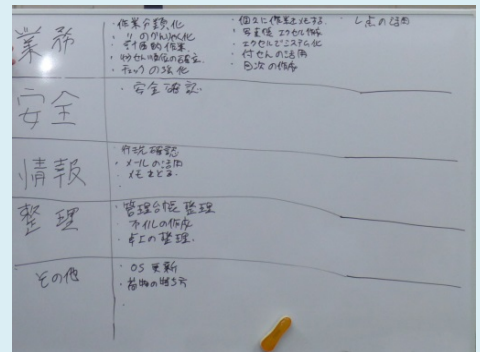 業務
・作業分類化
・〃のかんりゃく化
・計画的作業
・チェックの強化
・個々に標準化する。
・写真値 エクセル作成
・エクセルでシステム化
・付せんの活用
・目次の作成
・レ点の活用
安全
・安全確認
情報
・状況確認
・メールの活用
・メモをとる。
整理
・管理台帳整理
・ファイルの作成
・卓上の整理.
その他
・OS更新
・荷物の持ち方